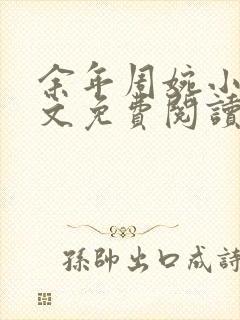 余年周婉小
文免費閱讀
孫帥出口成詩